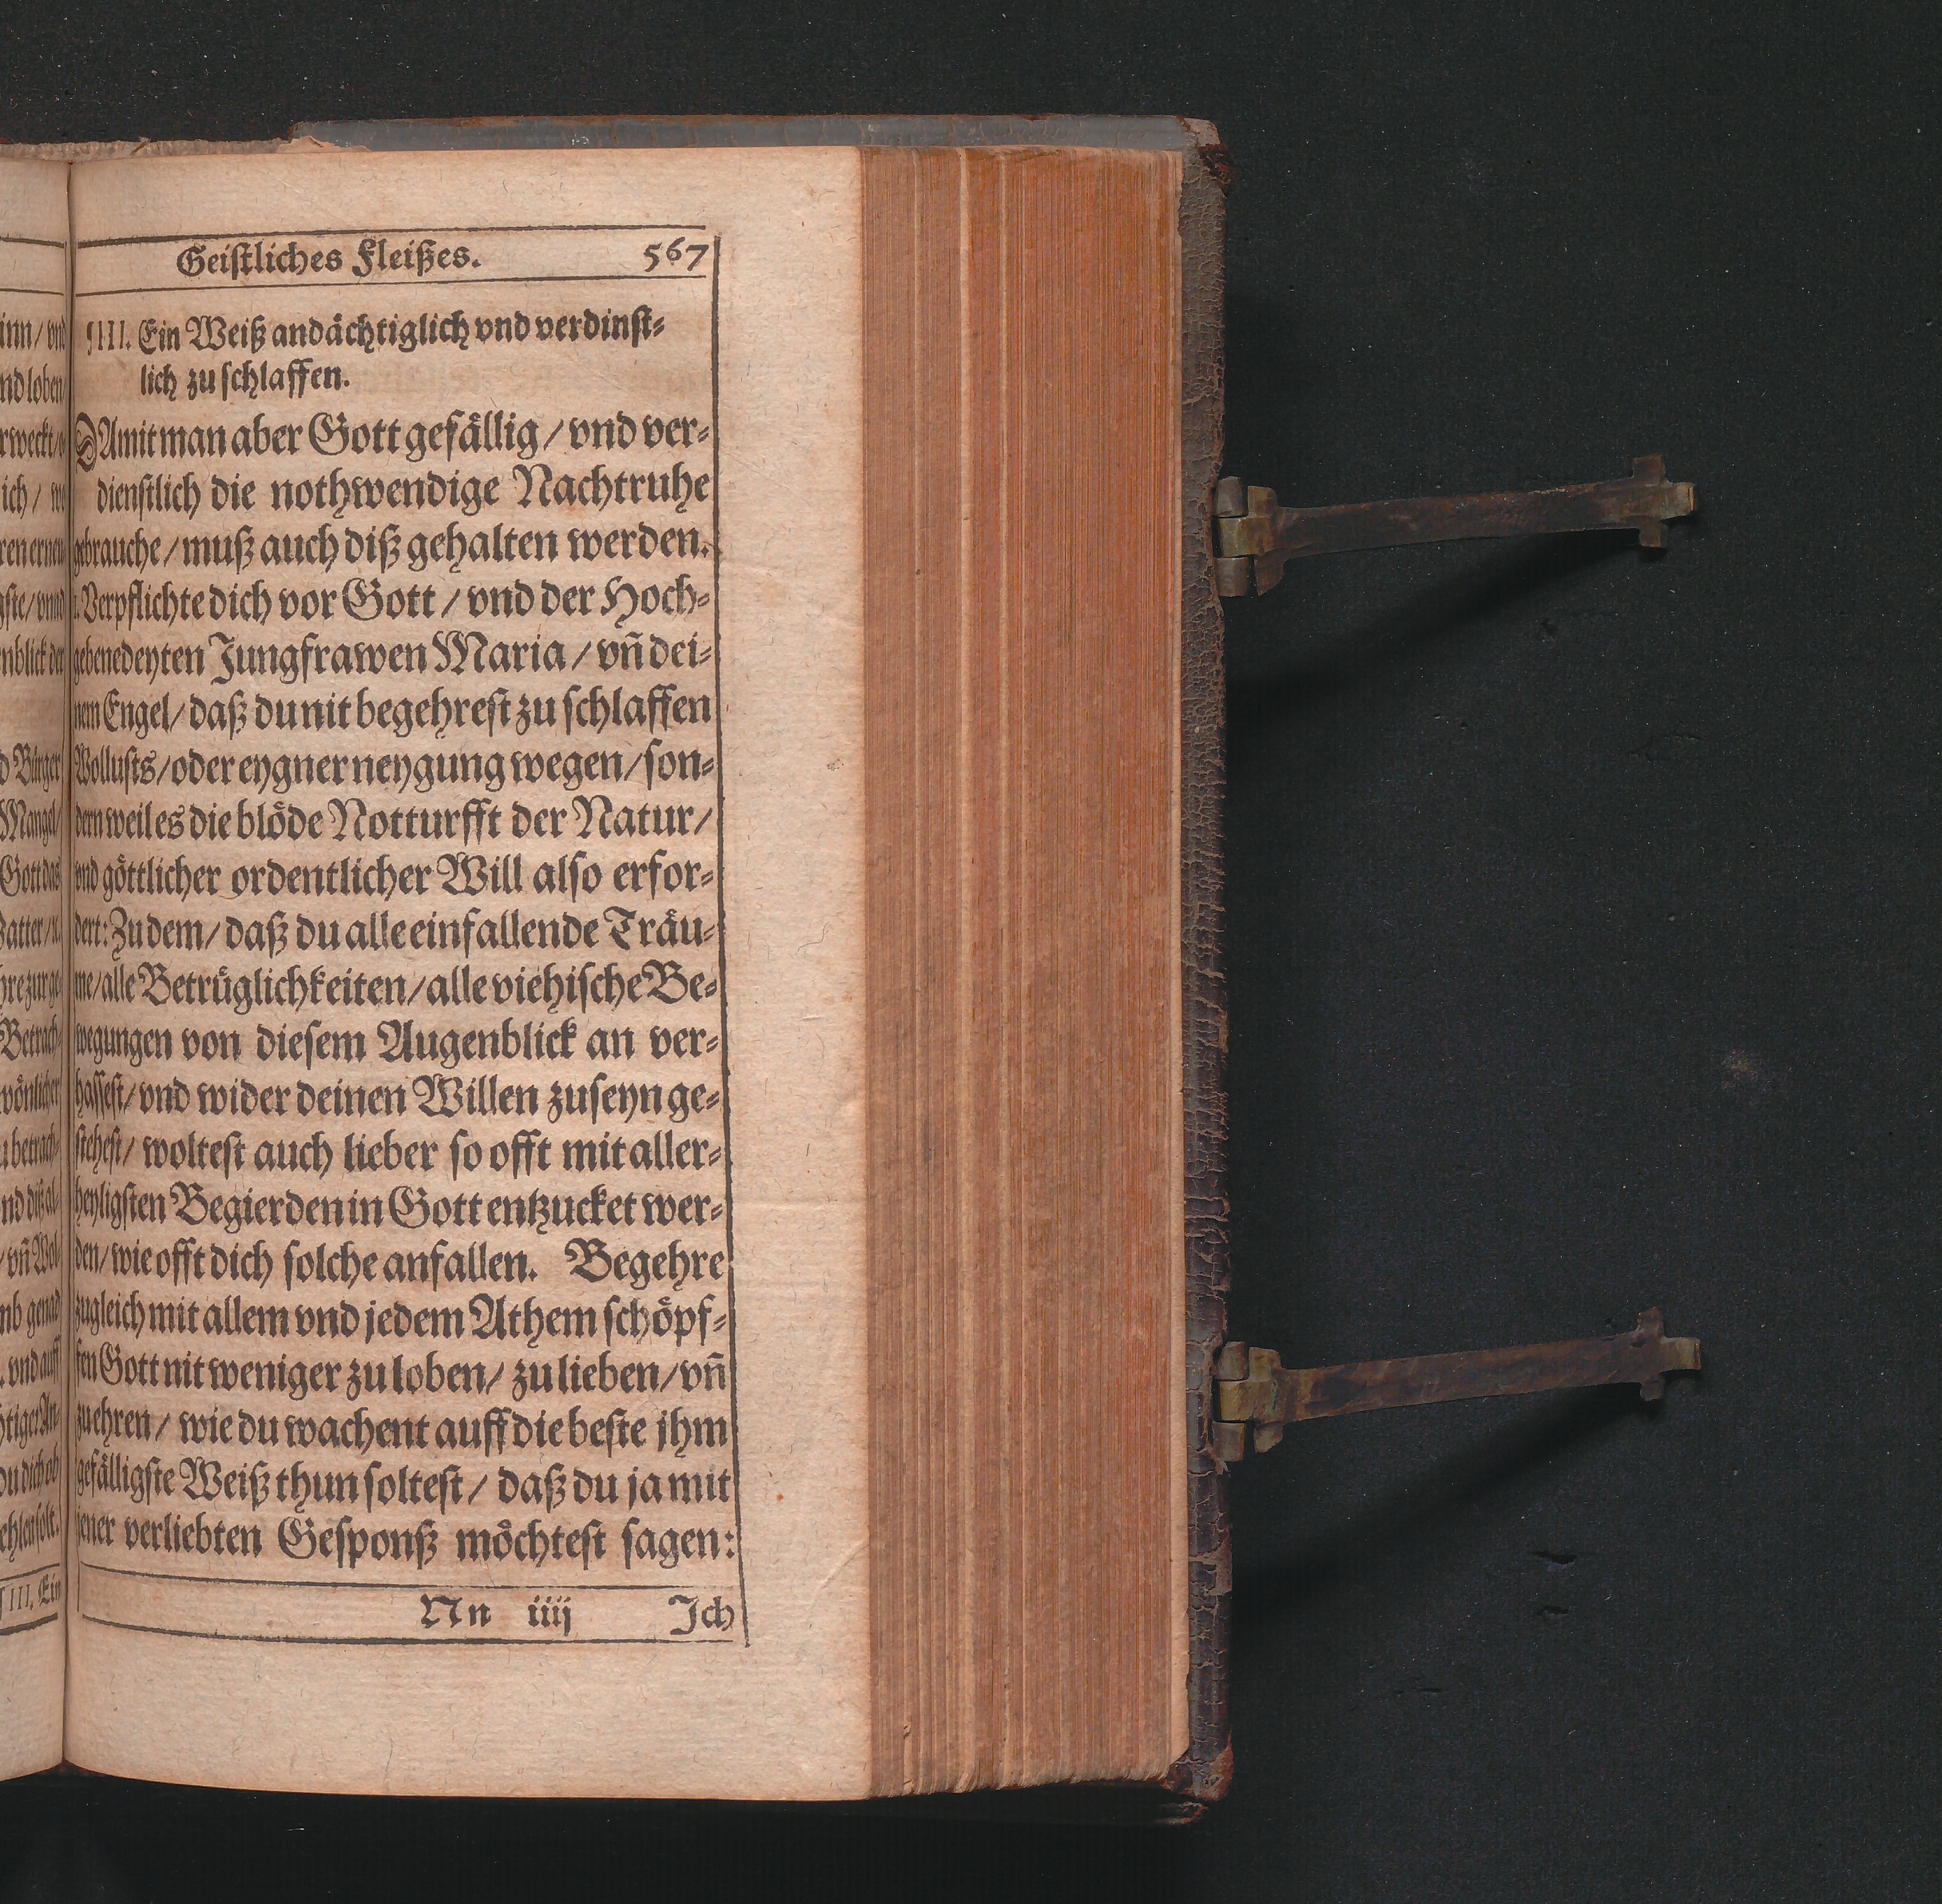 Geiſtliches Fleißes. 567
IIII. Ein Weiß andächtiglich vnd verdinſt-
lich zu ſchlaffen.
DAmit man aber Gott gefällig / vnd ver-
dienſtlich die nothwendige Nachtruhe
gebrauche / muß auch diß gehalten werden.
1. Verpflichte dich vor Gott / vnd der Hoch-
gebenedeyten Jungfrawen Maria / vñ dei-
nem Engel / daß du nit begehreſt zu ſchlaffen
Wolluſts / oder eygner neygung wegen / ſon-
dern weil es die blöde Notturfft der Natur /
vnd göttlicher ordentlicher Will alſo erfor-
dert: Zu dem / daß du alle einfallende Träu-
me / alle Betrüglichkeiten / alle viehiſche Be-
wegungen von dieſem Augenblick an ver-
haſſeſt / vnd wider deinen Willen zuſeyn ge-
ſteheſt / wolteſt auch lieber ſo offt mit aller-
heyligſten Begierden in Gott entzucket wer-
den / wie offt dich ſolche anfallen. Begehre
zugleich mit allem vnd jedem Athem ſchöpf-
fen Gott nit weniger zu loben / zu lieben / vñ
zu ehren / wie du wachent auff die beſte jhm
gefälligſte Weiß thun ſolteſt / daß du ja mit
jener verliebten Geſponß möchteſt ſagen:
Nn iiij Jch